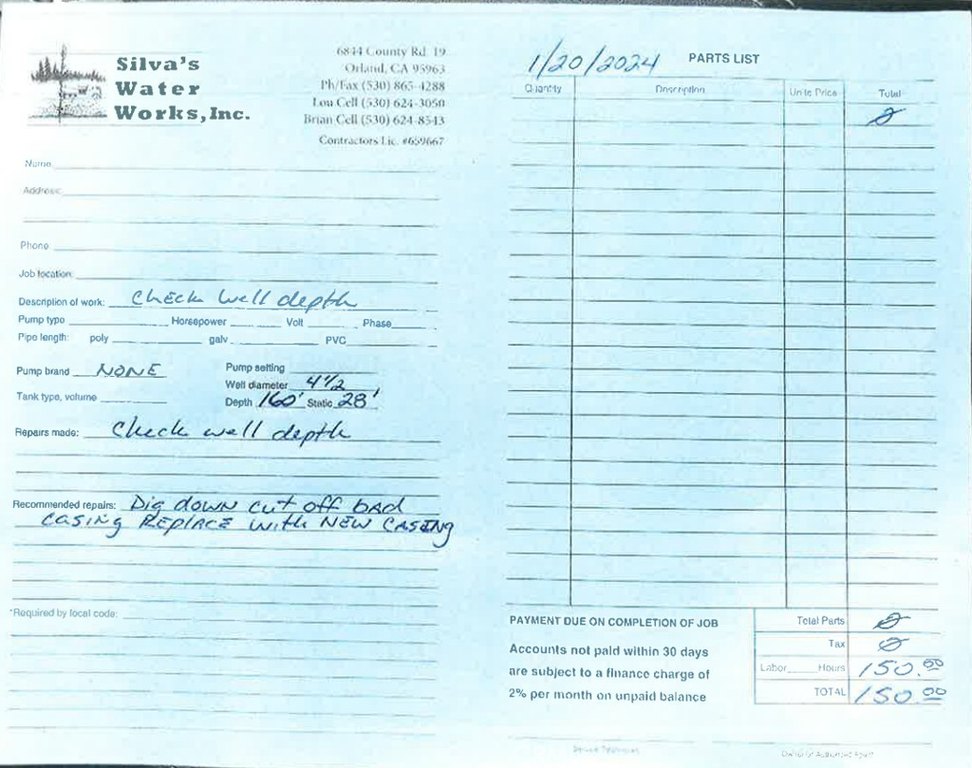 Silva's
Water
Works, Inc.
6844 County Rd. 19
Orland, CA 95963
Ph/Fax (530) 865-4288
Lou Cell (530) 624-3050
Brian Cell (530) 624-8543
Contractors Lic. #659667
Name
Address:
Phone
Job location:
Description of work: Check well depth
Pump type Horsepower Volt Phase
Pipe length: poly galv PVC
Pump brand NONE Pump setting
Well diameter 4 1/2
Tank type, volume Depth 160' Static 28'
Repairs made: Check well depth
Recommended repairs: Dig down cut off bad
casing Replace with New Casing
*Required by local code:
1/20/2024 PARTS LIST
Quantity Description Units Price Total
0
PAYMENT DUE ON COMPLETION OF JOB
Accounts not paid within 30 days
are subject to a finance charge of
2% per month on unpaid balance
Total Parts 0
Tax 0
Labor Hours 150.00
TOTAL 150.00
Service Technician Owner or Authorized Agent